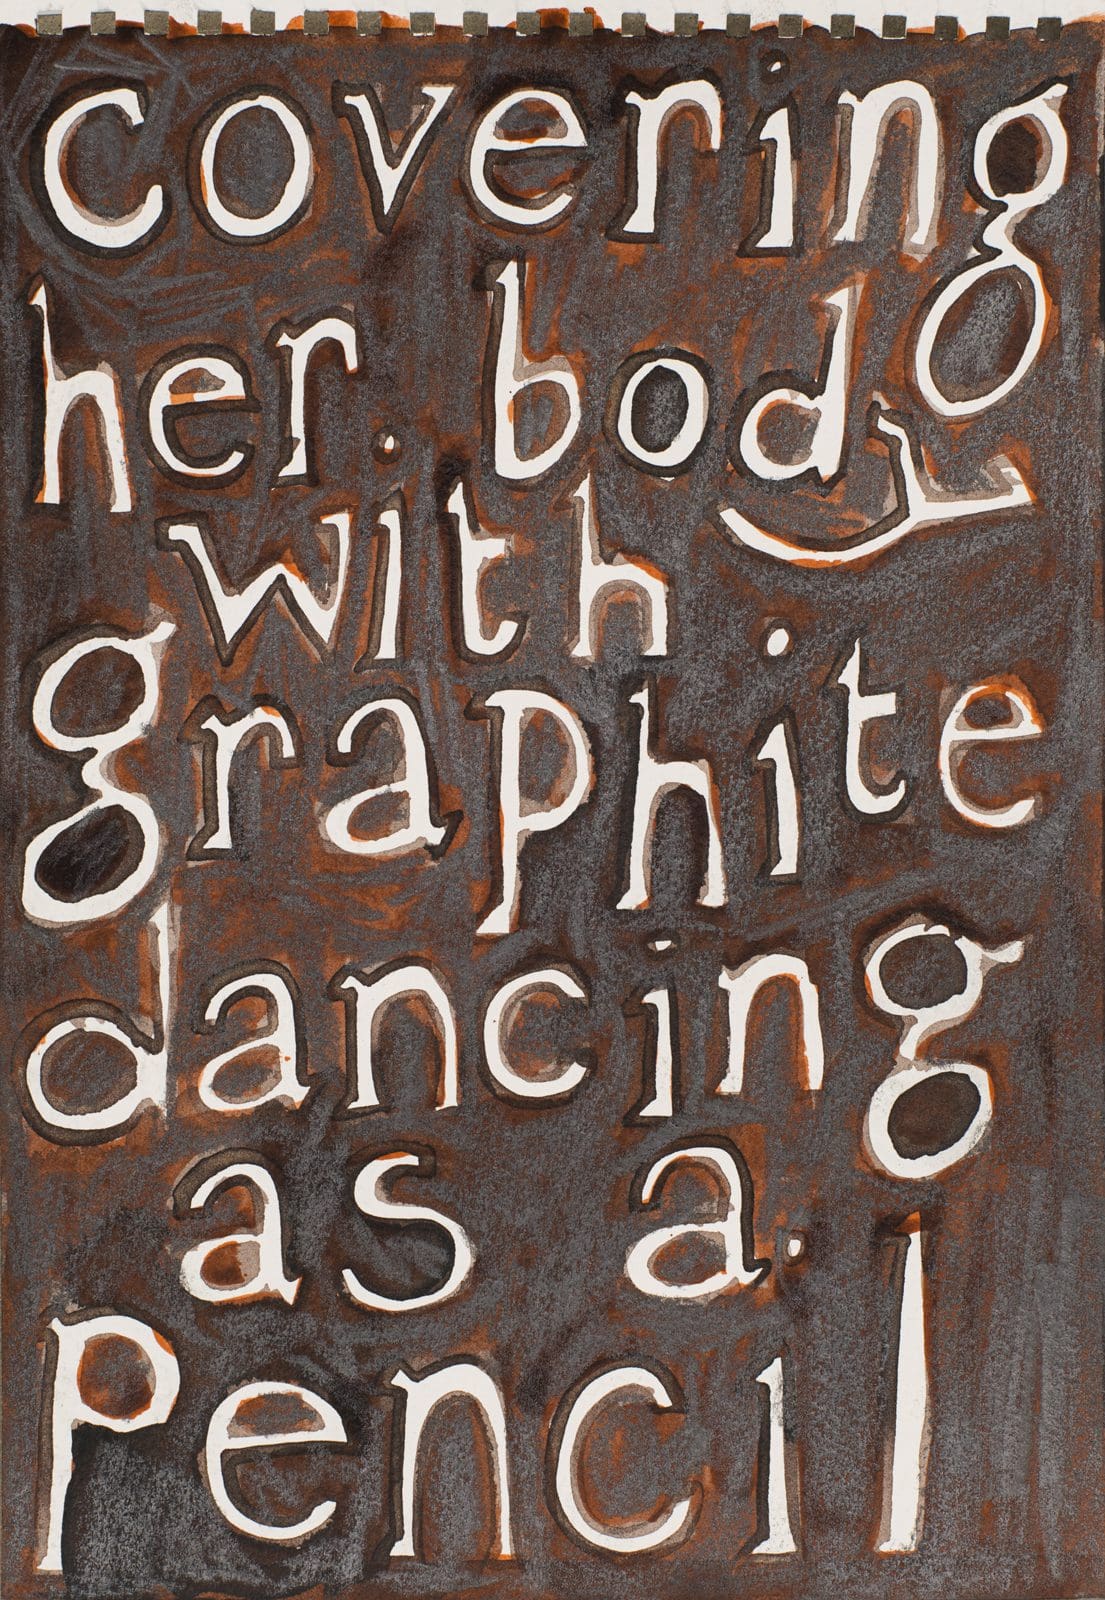 covering
her body
with
graphite
dancing
as a
Pencil